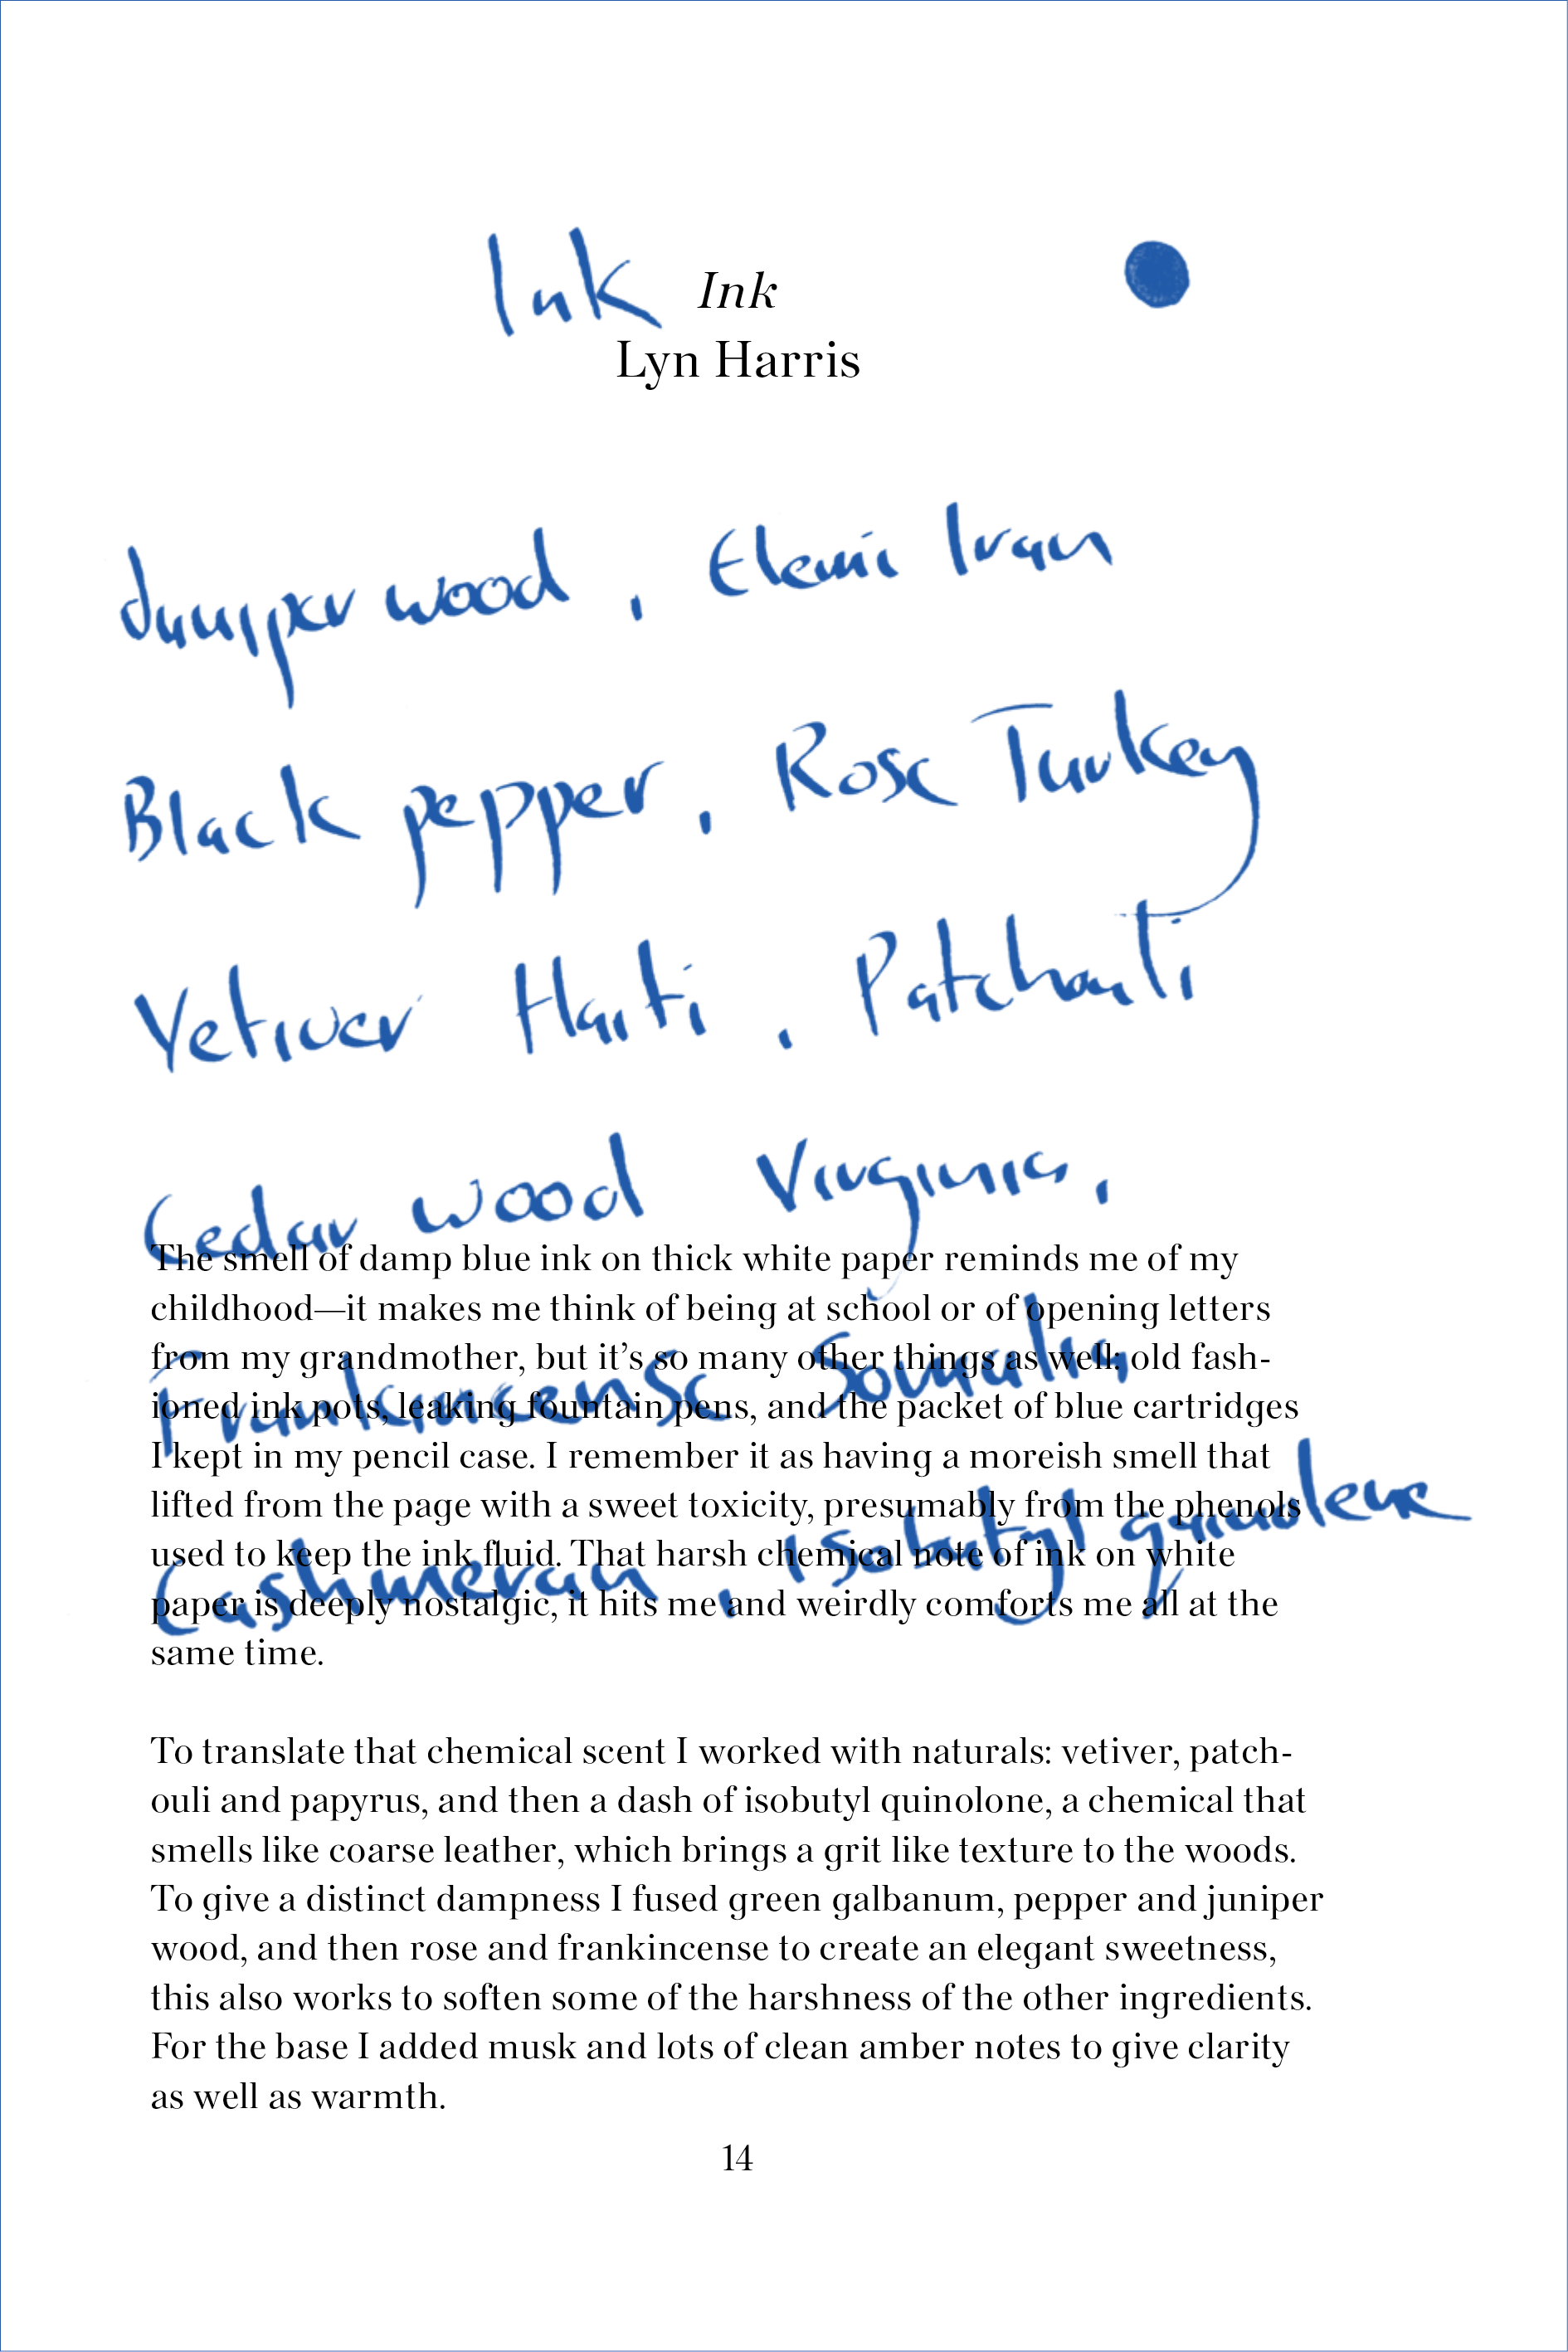 Ink
Ink
Lyn Harris
Juniper wood, Elemi Iran
Black pepper, Rose Turkey
Vetiver Haiti, Patchouli
Cedar wood Virginia,
Frankincense Somalia
Cashmeran, Isobutyl quinolene
The smell of damp blue ink on thick white paper reminds me of my
childhood—it makes me think of being at school or of opening letters
from my grandmother, but it’s so many other things as well: old fash-
ioned ink pots, leaking fountain pens, and the packet of blue cartridges
I kept in my pencil case. I remember it as having a moreish smell that
lifted from the page with a sweet toxicity, presumably from the phenols
used to keep the ink fluid. That harsh chemical note of ink on white
paper is deeply nostalgic, it hits me and weirdly comforts me all at the
same time.
To translate that chemical scent I worked with naturals: vetiver, patch-
ouli and papyrus, and then a dash of isobutyl quinolone, a chemical that
smells like coarse leather, which brings a grit like texture to the woods.
To give a distinct dampness I fused green galbanum, pepper and juniper
wood, and then rose and frankincense to create an elegant sweetness,
this also works to soften some of the harshness of the other ingredients.
For the base I added musk and lots of clean amber notes to give clarity
as well as warmth.
14